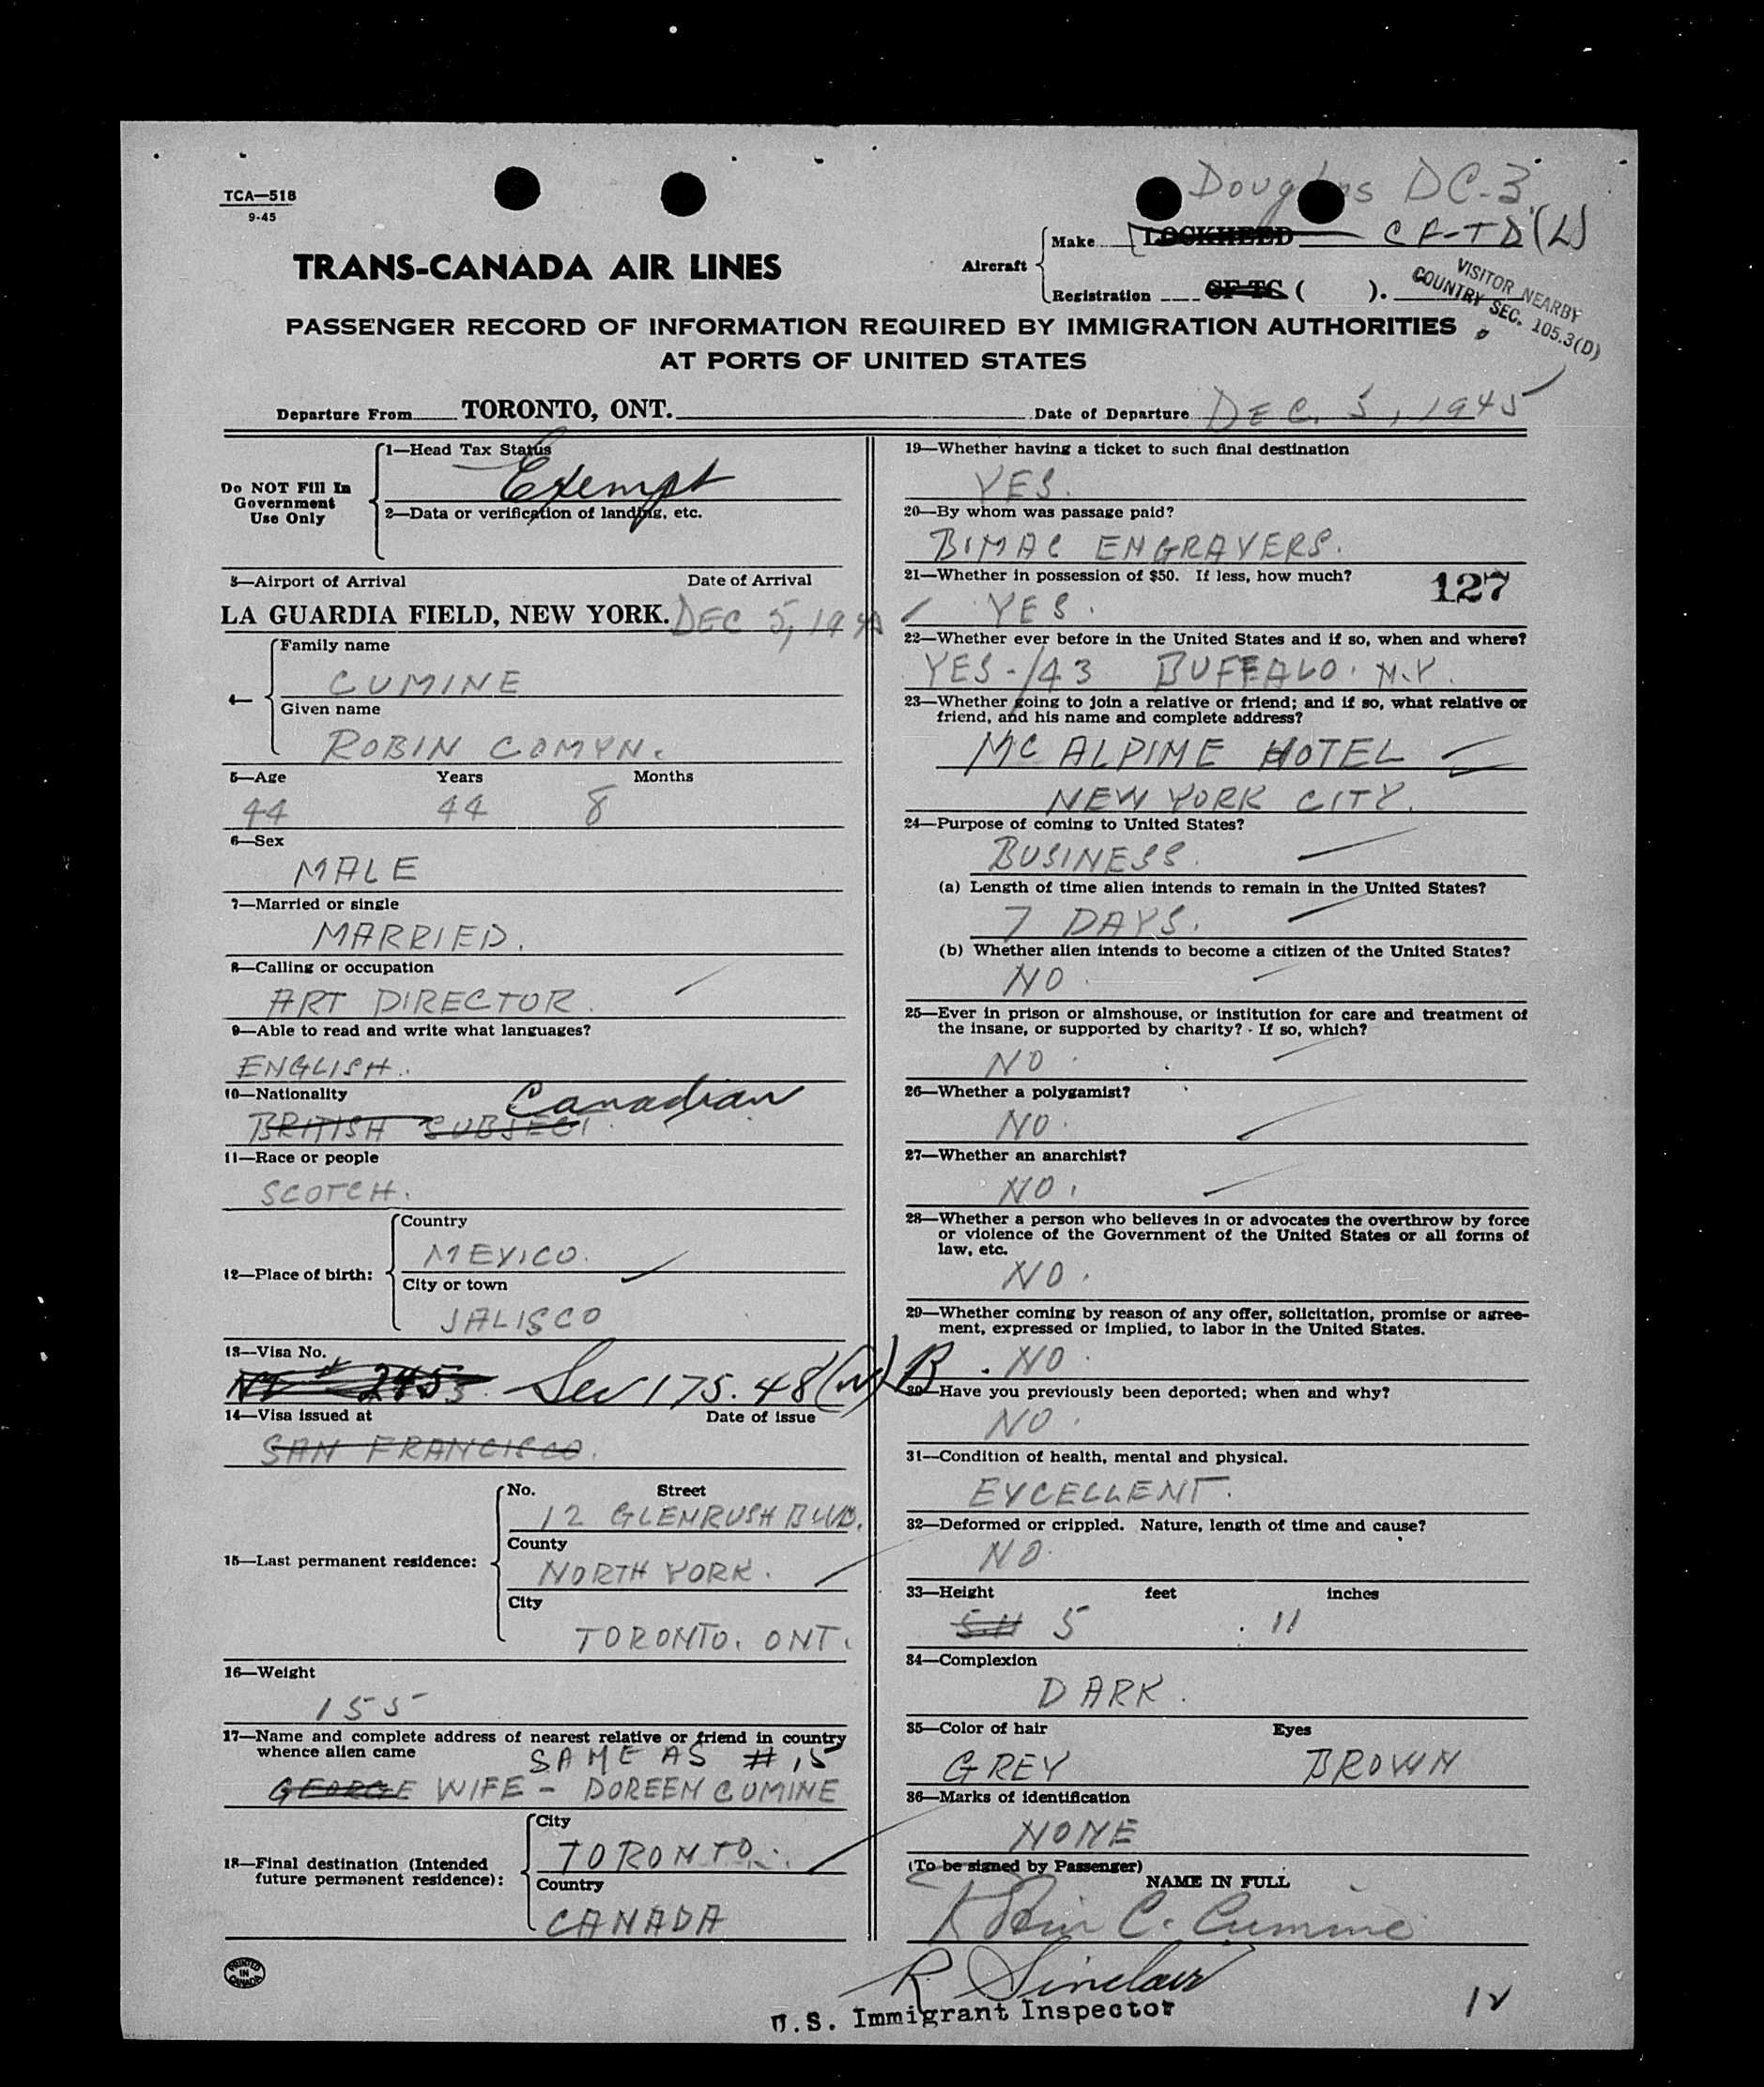 TCA—518
9-45
Douglas DC-3.
TRANS-CANADA AIR LINES
Aircraft
Make LOCKHEED CF-TD(L)
Registration CF-TC ( ).
VISITOR NEARBY
COUNTRY SEC. 105.3(D)
PASSENGER RECORD OF INFORMATION REQUIRED BY IMMIGRATION AUTHORITIES
AT PORTS OF UNITED STATES
Departure From TORONTO, ONT. Date of Departure DEC. 5, 1945
Do NOT Fill In
Government
Use Only
1—Head Tax Status
Exempt
2—Data or verification of landing, etc.
3—Airport of Arrival Date of Arrival
LA GUARDIA FIELD, NEW YORK. DEC 5, 1945
4—
Family name
CUMINE
Given name
ROBIN COMYN.
5—Age Years Months
44 44 8
6—Sex
MALE
7—Married or single
MARRIED.
8—Calling or occupation
ART DIRECTOR.
9—Able to read and write what languages?
ENGLISH.
10—Nationality
Canadian
BRITISH SUBJECT.
11—Race or people
SCOTCH.
12—Place of birth:
Country
MEXICO.
City or town
JALISCO
13—Visa No.
2453 Sec 175.48(N)B
14—Visa issued at Date of issue
SAN FRANCISCO.
15—Last permanent residence:
No. Street
12 GLENRUSH BLVD.
County
NORTH YORK.
City
TORONTO. ONT.
16—Weight
155
17—Name and complete address of nearest relative or friend in country
whence alien came
SAME AS # 15
GEORGE WIFE - DOREEN CUMINE
18—Final destination (Intended
future permanent residence):
City
TORONTO.
Country
CANADA
PRINTED
IN
CANADA
19—Whether having a ticket to such final destination
YES.
20—By whom was passage paid?
BIMAC ENGRAVERS.
21—Whether in possession of $50. If less, how much?
127
YES.
22—Whether ever before in the United States and if so, when and where?
YES-/43 BUFFALO. N.Y.
23—Whether going to join a relative or friend; and if so, what relative or
friend, and his name and complete address?
MC ALPINE HOTEL
NEW YORK CITY.
24—Purpose of coming to United States?
BUSINESS.
(a) Length of time alien intends to remain in the United States?
7 DAYS.
(b) Whether alien intends to become a citizen of the United States?
NO.
25—Ever in prison or almshouse, or institution for care and treatment of
the insane, or supported by charity? If so, which?
NO.
26—Whether a polygamist?
NO.
27—Whether an anarchist?
NO.
28—Whether a person who believes in or advocates the overthrow by force
or violence of the Government of the United States or all forms of
law, etc.
NO.
29—Whether coming by reason of any offer, solicitation, promise or agree-
ment, expressed or implied, to labor in the United States.
NO.
30—Have you previously been deported; when and why?
NO.
31—Condition of health, mental and physical.
EXCELLENT.
32—Deformed or crippled. Nature, length of time and cause?
NO.
33—Height feet inches
5.11 5 . 11
34—Complexion
DARK.
35—Color of hair Eyes
GREY BROWN
36—Marks of identification
NONE
(To be signed by Passenger)
NAME IN FULL
Robin C. Cumine
R. Sinclair
U.S. Immigrant Inspector